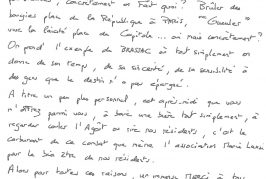 , concrètement on fait quoi ? Brûler des
bougies place de la République à PARIS, "Gueuler"
sur la Place du Capitole... oui mais concrètement ?
On prend l'exemple de BRASSAC à tout simplement on
donne de son temps, de sa sincérité, de sa sensibilité à
des gens que le destin n'a pas épargné.
A titre un peu plus personnel, cet après-midi que vous
n'offrez parmi vous, à boire une bière tout simplement, à
regarder couler l'Agoût ou rire nos résidents, c'est le
carburant de ce combat que mène l'association Marie Louise
pour le bien être de nos résidents.
Alors pour toutes ces raisons, un immense MERCI à tous